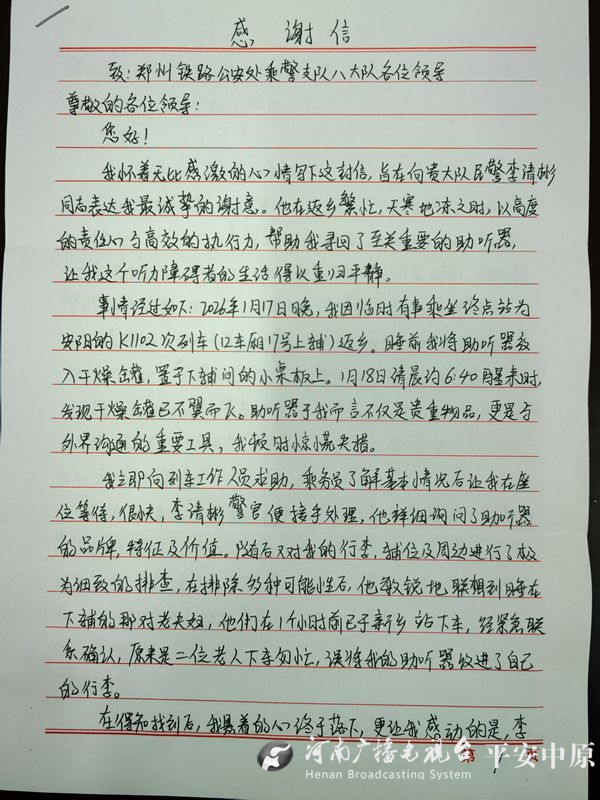 感 谢 信
致：郑州铁路公安处乘警支队八大队各位领导
尊敬的各位领导：
您好！
我怀着无比感激的心情写下这封信，旨在向贵大队民警李清彬
同志表达我最诚挚的谢意。他在返乡繁忙，天寒地冻之时，以高度
的责任心与高效的执行力，帮助我寻回了至关重要的助听器，
让我这个听力障碍者的生活得以重归平静。
事情经过如下：2026年1月17日晚，我因临时有事乘坐终点站为
安阳的K1102次列车（12车厢17号上铺）返乡。睡前我将助听器放
入干燥罐，置于下铺间的小桌板上。1月18日清晨约6:40醒来时，
发现干燥罐已不翼而飞。助听器于我而言不仅是贵重物品，更是与
外界沟通的重要工具，我顿时惊慌失措。
我立即向列车工作人员求助，乘务员了解基本情况后让我在座
位等待，很快，李清彬警官便接手处理，他详细询问了助听器
的品牌，特征及价值。随后又对我的行李，铺位及周边进行了极
为细致的排查，在排除多种可能性后，他敏锐地联想到睡在
下铺的那对老夫妇，他们在1个小时前已于新乡站下车，经紧急联
系确认，原来是二位老人下车匆忙，误将我的助听器收进了自己
的行李。
在得知找到后，我悬着的心终于落下，更让我感动的是，李
第 1 页
河南广播电视台 平安中原
Henan Broadcasting System